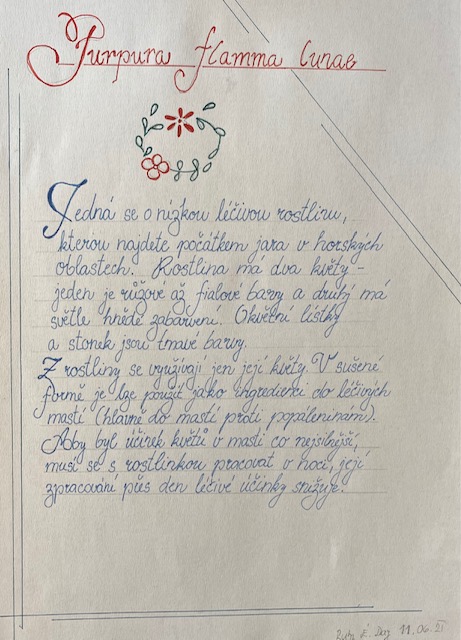 Purpura flamma lunae
Jedná se o nízkou léčivou rostlinu,
kterou najdete počátkem jara v horských
oblastech. Rostlina má dva květy -
jeden je růžové až fialové barvy a druhý má
světle hnědé zabarvení. Okvětní lístky
a stonek jsou tmavé barvy.
Z rostliny se využívají jen její květy. V sušené
formě je lze použít jako ingredienci do léčivých
mastí (hlavně do mastí proti popáleninám).
Aby byl účinek květů v masti co nejsilnější,
musí se s rostlinkou pracovat v noci, její
zpracování přes den léčivé účinky snižuje.
11.06.21